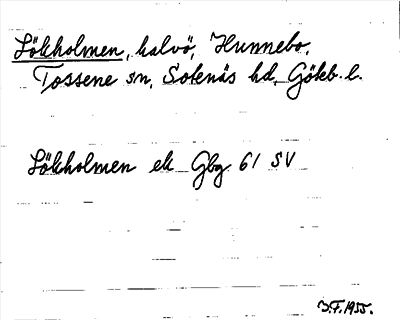 Lökholmen, halvö, Hunnebo,
Tossene sn, Sotenäs hd, Göteb. l.
Lökholmen ek Gbg 61 SV
3.F. 1955.